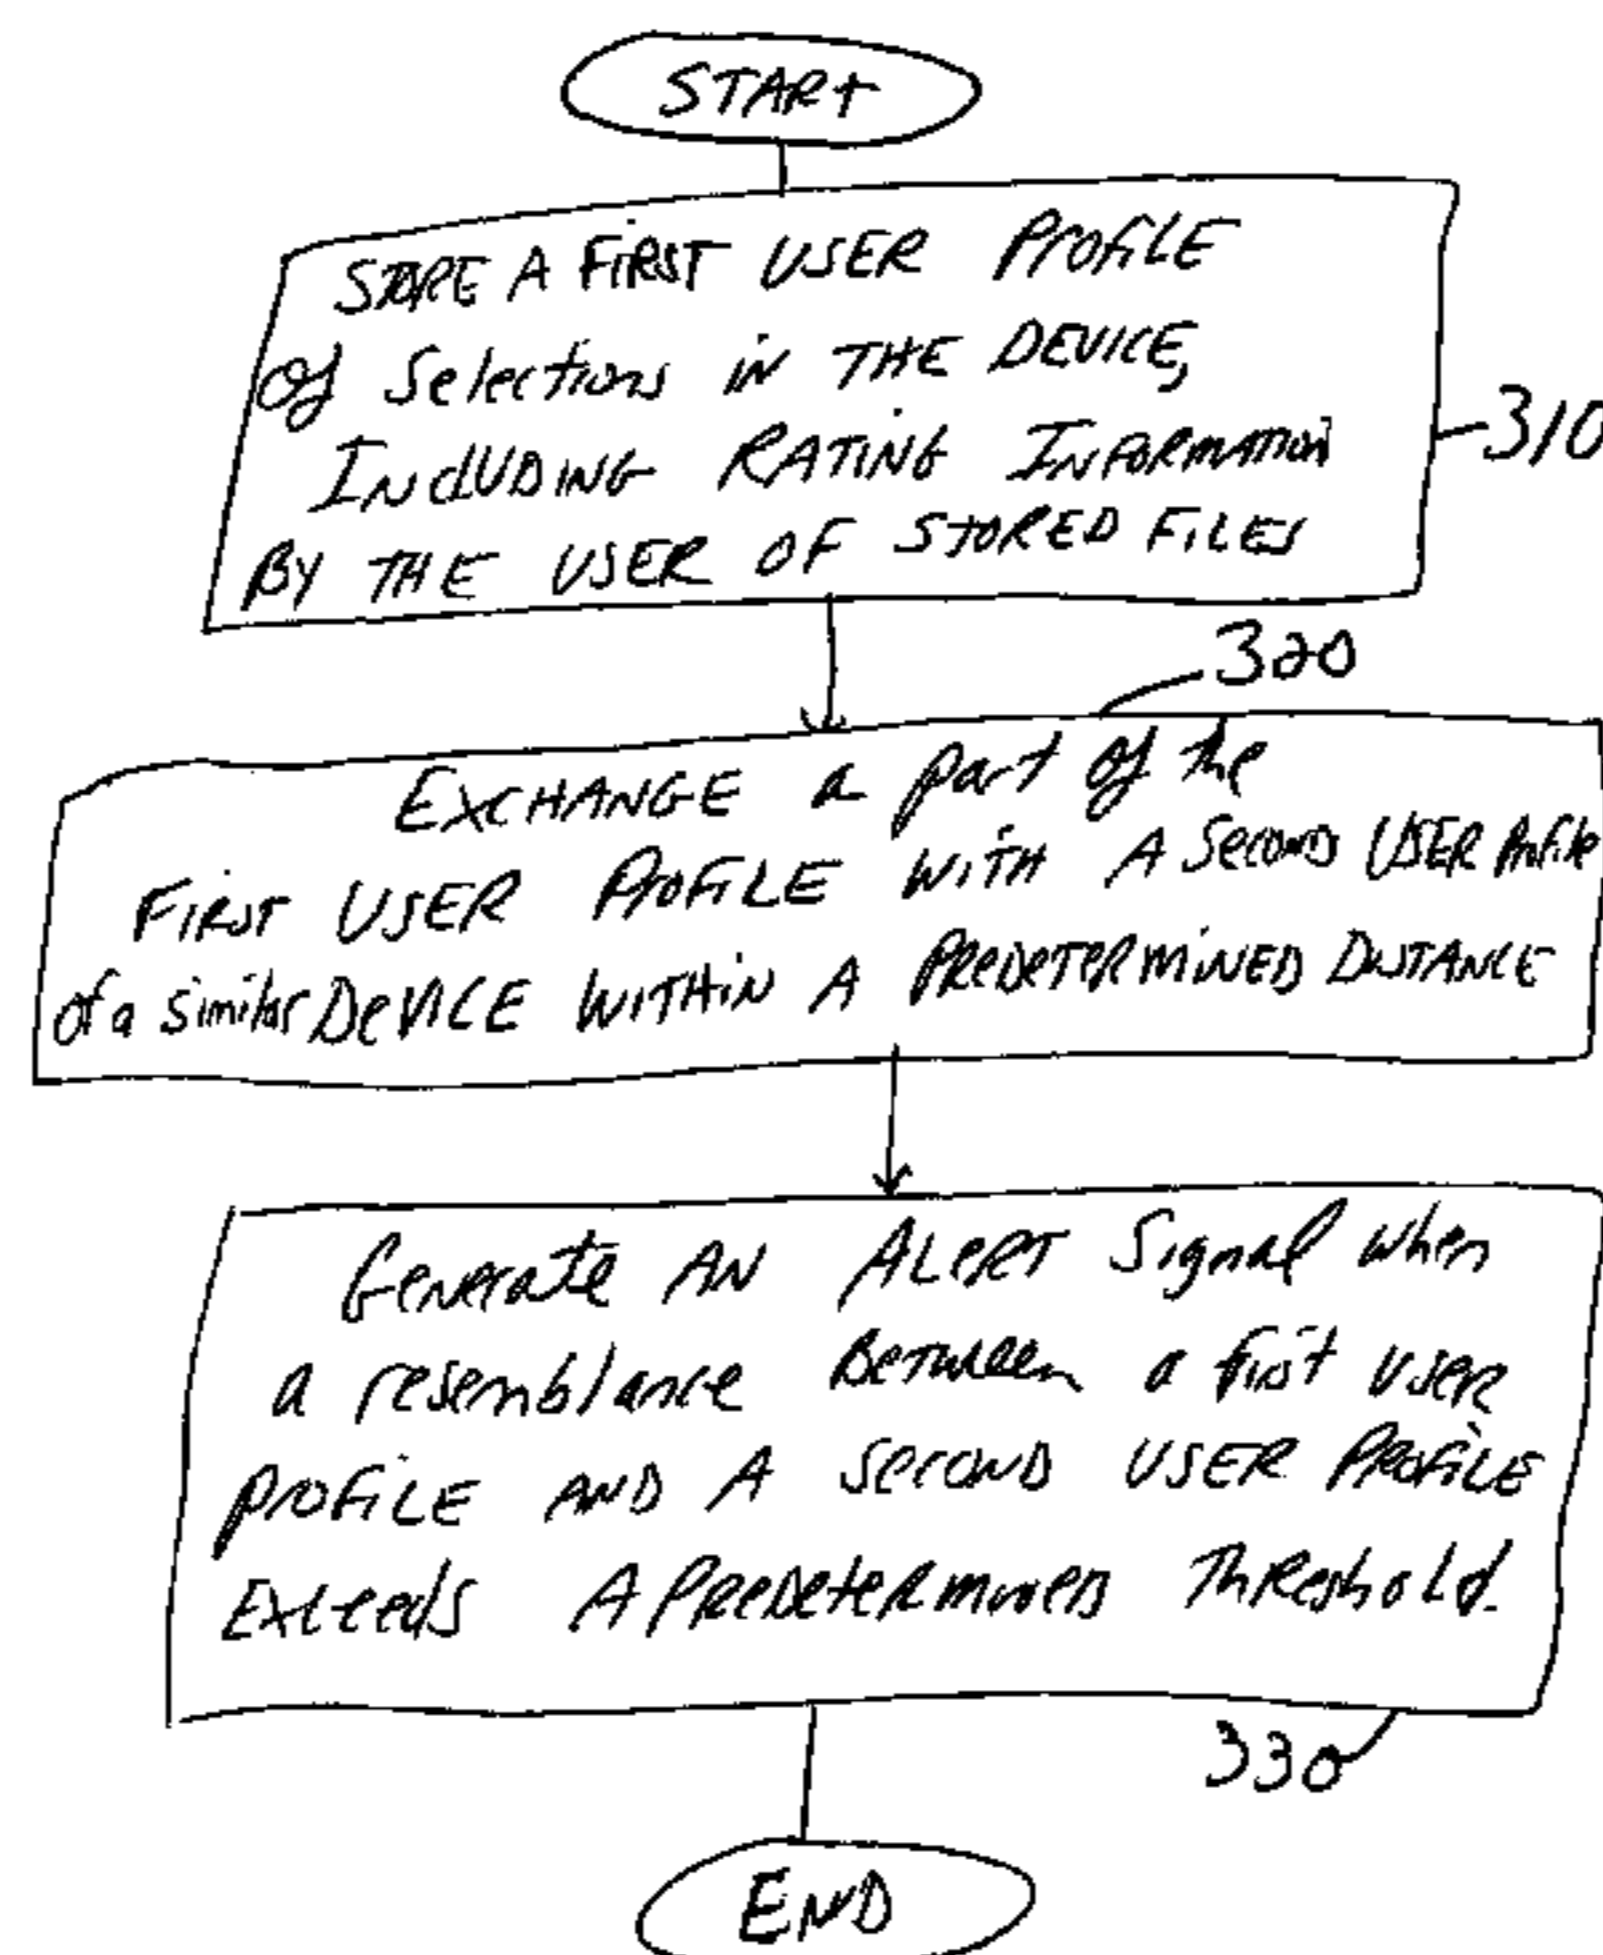 START
STORE A FIRST USER PROFILE
of Selections in THE DEVICE,
INCLUDING RATING INFORMATION
BY THE USER OF STORED FILES
310
320
EXCHANGE a part of the
FIRST USER PROFILE WITH A Second USER Profile
of a similar DEVICE WITHIN A PREDETERMINED DISTANCE
Generate AN ALERT Signal when
a resemblance Between a first user
PROFILE AND A SECOND USER PROFILE
Exceeds A PREDetermined Threshold.
330
END